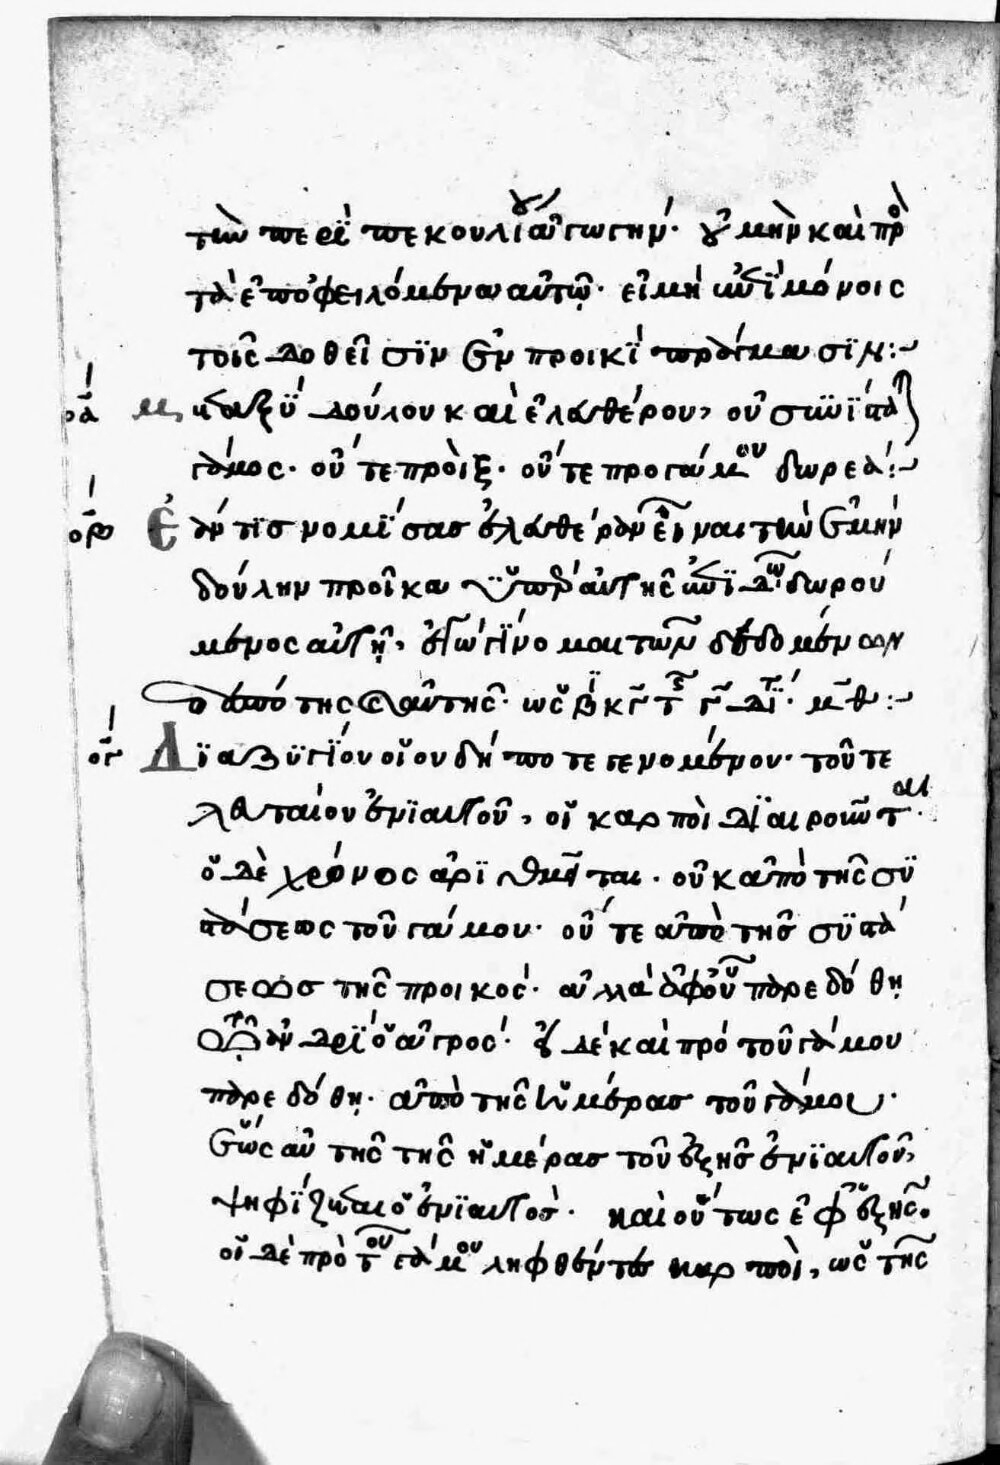 τὴν περὶ πεκουλίου ἀγωγήν· οὐ μὴν καὶ πρὸ
τὰ ἐποφειλόμενα αὐτῷ· εἰ μὴ ἐπὶ μόνοις
τοῖς δοθεῖσιν ἐν προικὶ πράγμασιν :~
οα μεταξὺ δούλου καὶ ἐλευθέρου, οὐ συνίσταται
γάμος· οὔτε προίξ· οὔτε προγάμου δωρεά :~
οβ Ἐάν τις νομίσας ἐλευθέραν εἶναι τὴν ἐμὴν
δούλην προῖκα ὑπὲρ αὐτῆς ἐπιδῷ δωρού
μενος αὐτῇ, ἐξ ὧν γίνομαι τῶν δεδομένων
ὁ δεσπότης αὐτῆς· ὡς βι κγ τι γ δι· μθ :~
ογ Διαζυγίου οἱουνδήποτε γενομένου· τοῦ τε
λευταίου ἐνιαυτοῦ, οἱ καρποὶ διαιροῦνται·
ὁ δὲ χρόνος ἀριθμεῖται· οὐκ ἀπὸ τῆς συ
στάσεως τοῦ γάμου· οὔτε ἀπὸ τῆς συστά
σεως τῆς προικός· ἀλλ' ἀφ' οὗ παρεδόθη
τῷ ἀνδρὶ ὁ ἀγρός· εἰ δὲ καὶ πρὸ τοῦ γάμου
παρεδόθη· ἀπὸ τῆς ἡμέρας τοῦ γάμου·
ἕως αὐτῆς τῆς ἡμέρας τοῦ ἑξῆς ἐνιαυτοῦ,
ψηφίζεται ὁ ἐνιαυτός· καὶ οὕτως ἐφεξῆς.
οἱ δὲ πρὸ τοῦ γάμου ληφθέντες καρποί, ὡς τῆς